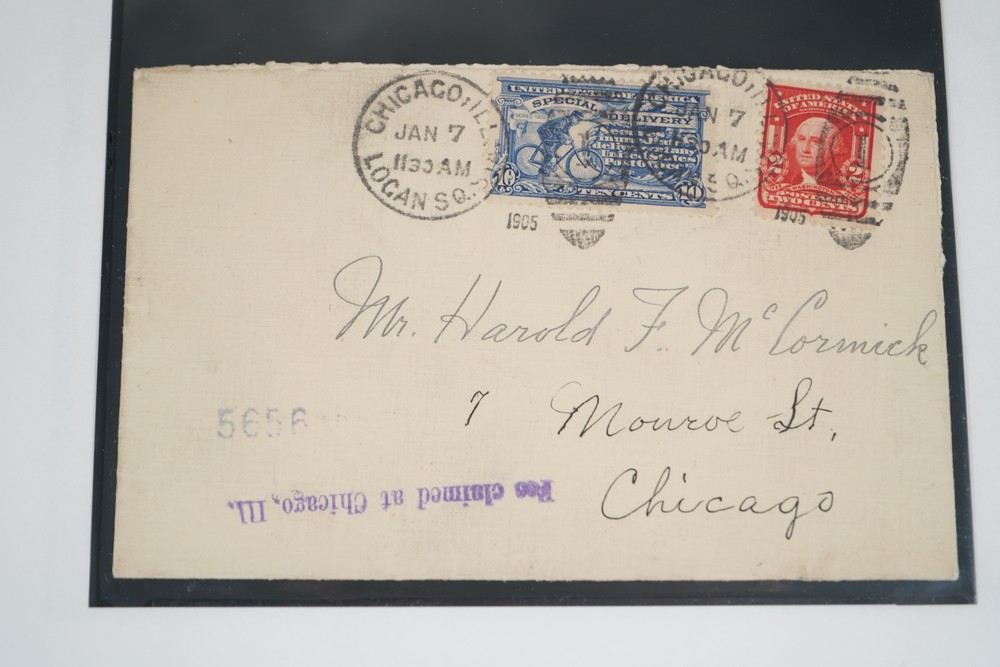 CHICAGO, ILL.
JAN 7
1130 AM
LOGAN SQ.
1905
UNITED STATES OF AMERICA
SPECIAL DELIVERY
10 TEN CENTS 10
N 7
1130 AM
SQ.
1905
UNITED STATES
OF AMERICA
2 WASHINGTON 2
POSTAGE
TWO CENTS
Mr. Harold F. McCormick
7 Monroe St,
Chicago
5656
Fee claimed at Chicago, Ill.